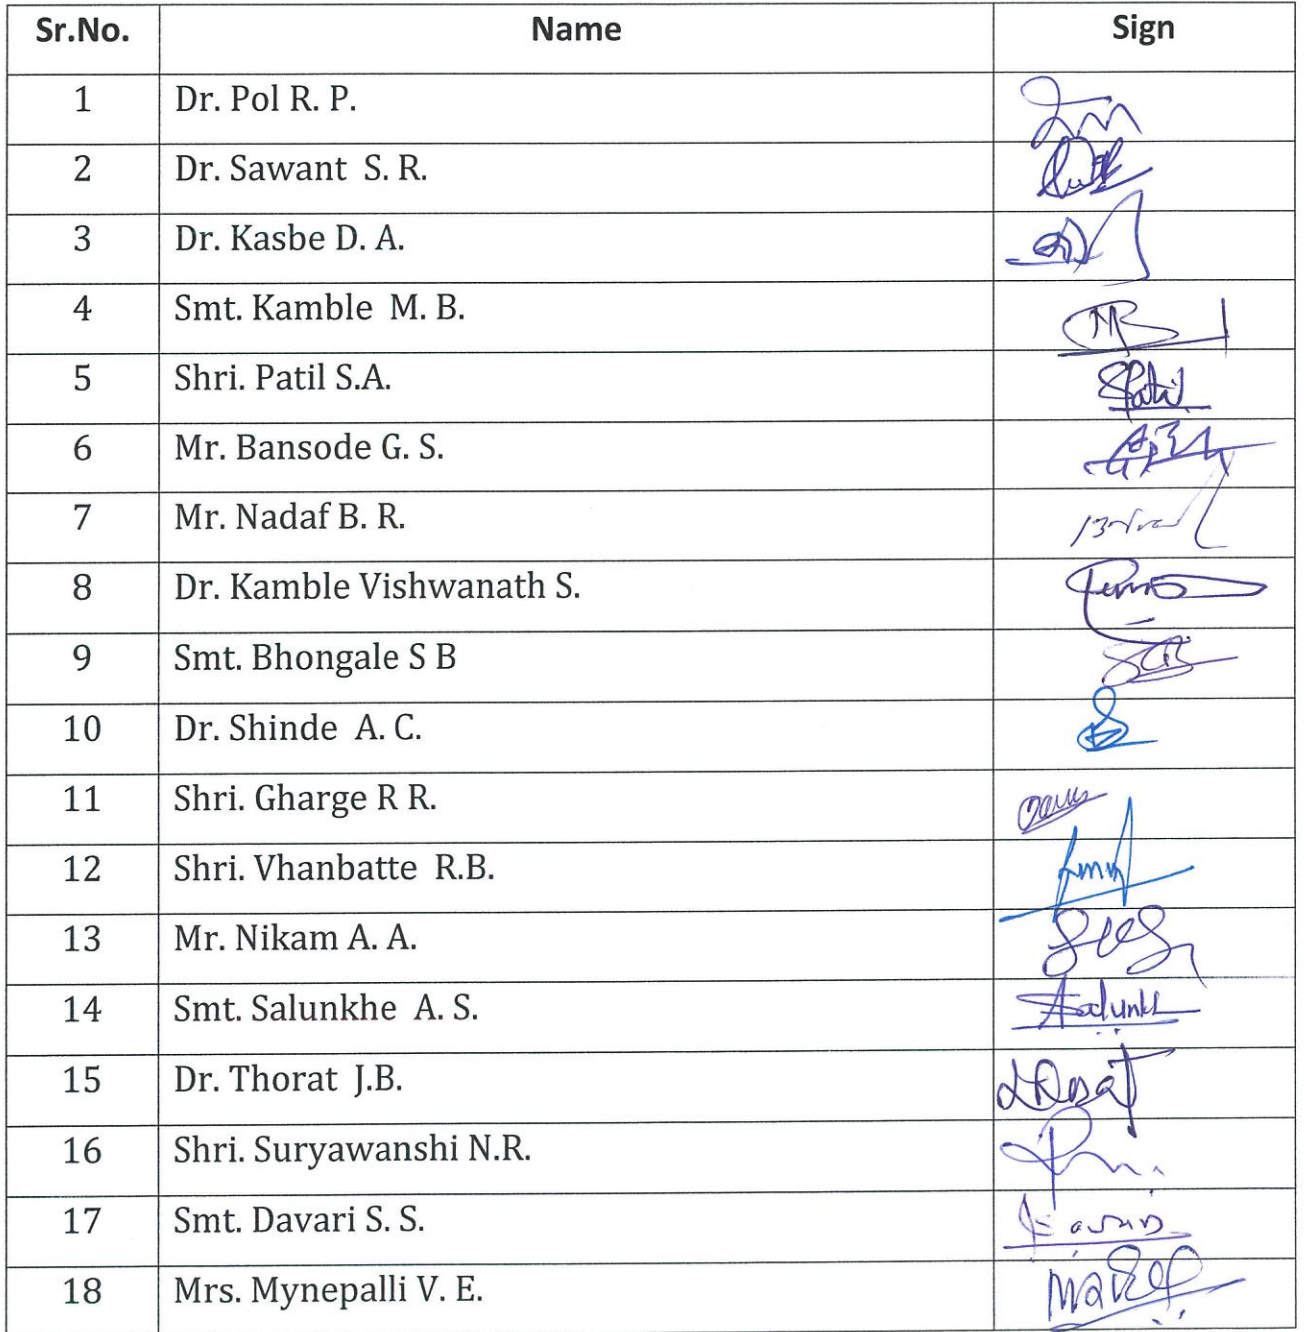 Sr.No. Name Sign
1 Dr. Pol R. P.
2 Dr. Sawant S. R.
3 Dr. Kasbe D. A.
4 Smt. Kamble M. B.
5 Shri. Patil S.A. SPatil
6 Mr. Bansode G. S.
7 Mr. Nadaf B. R.
8 Dr. Kamble Vishwanath S.
9 Smt. Bhongale S B
10 Dr. Shinde A. C.
11 Shri. Gharge R R.
12 Shri. Vhanbatte R.B.
13 Mr. Nikam A. A.
14 Smt. Salunkhe A. S.
15 Dr. Thorat J.B.
16 Shri. Suryawanshi N.R.
17 Smt. Davari S. S.
18 Mrs. Mynepalli V. E.